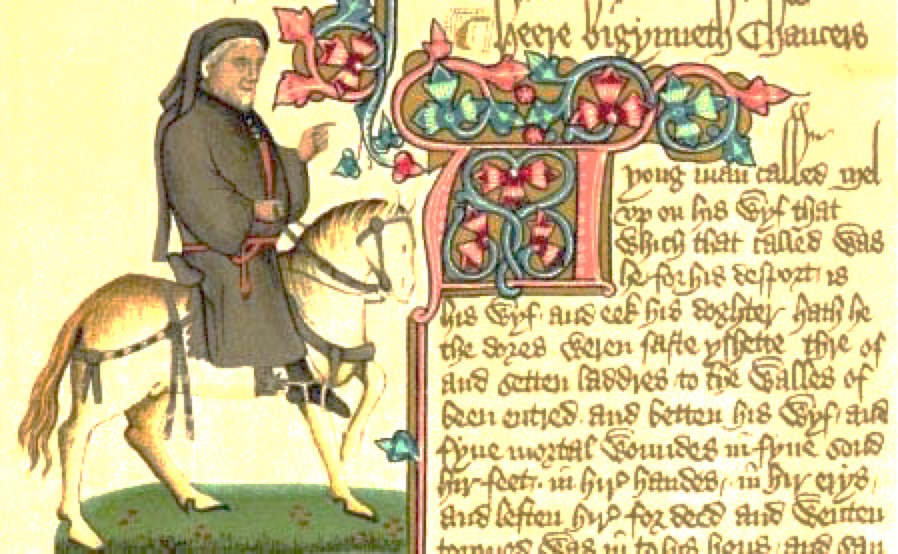 Heere bigynneth Chaucers
yong man called Mel
vp on his Wyf that
Which that called was
he for his desport is
his Wyf and eek his doghter hath he
the dores weren faste yshette thre of
and setten laddres to the Walles of
been entred and betten his Wyf and
fyue mortal Woundes in fyue sond
hir feet in hir handes in hir erys
and leften hir for deed and Wenten
torned Was in to his hous and sau